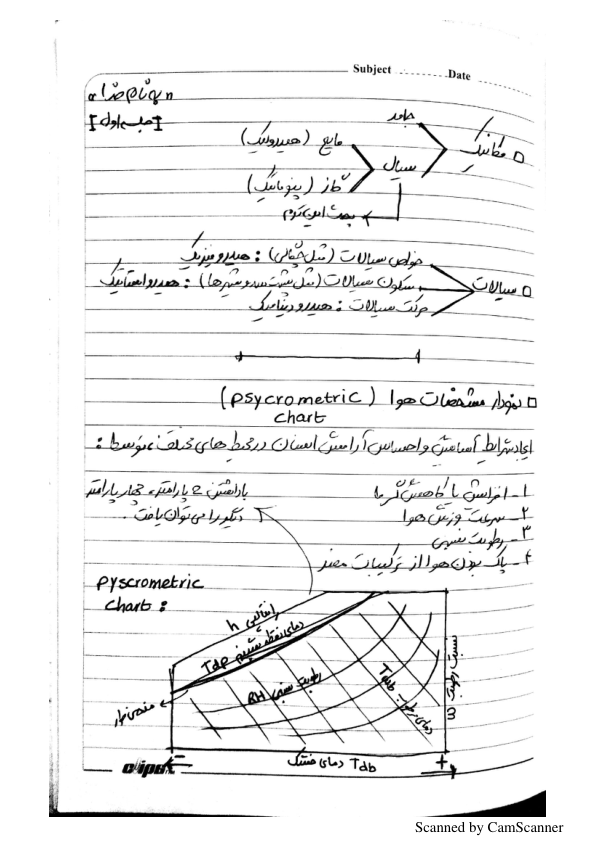 Subject ........ Date .......
« به نام خدا »
[جلسه اول]
□ مکانیک
جامد
سیال
مایع (هیدرولیک)
گاز (پنوماتیک)
بحث این ترم
□ سیالات
خواص سیالات (مثل چگالی) : هیدروفیزیک
سکون سیالات (مثل پشت سد و شیرها) : هیدرواستاتیک
حرکت سیالات : هیدرودینامیک
□ نمودار مشخصات هوا (psycrometric
chart)
ایجاد شرایط آسایش و احساس آرامش انسان در محیط های مختلف، توسط :
۱- افزایش یا کاهش گرما
۲- سرعت وزش هوا
۳- رطوبت نسبی
۴- پاک بودن هوا از ترکیبات مضر
با داشتن 2 پارامتر، چهار پارامتر
دیگر را می توان یافت.
pyscrometric
chart :
انتالپی h
دمای نقطه شبنم Tdp
رطوبت نسبی RH
دمای مرطوب Twb
نسبت رطوبت ω
منحنی
دمای خشک Tdb
clips
Scanned by CamScanner